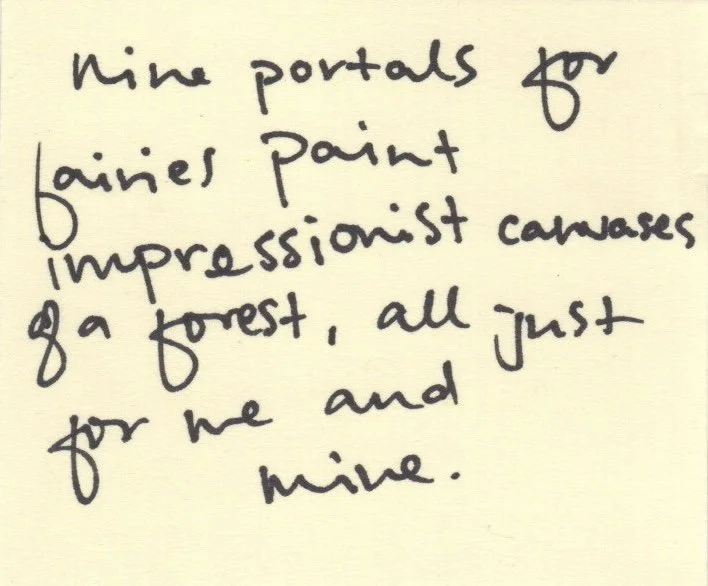 nine portals for
fairies paint
impressionist canvases
of a forest, all just
for me and
mine.